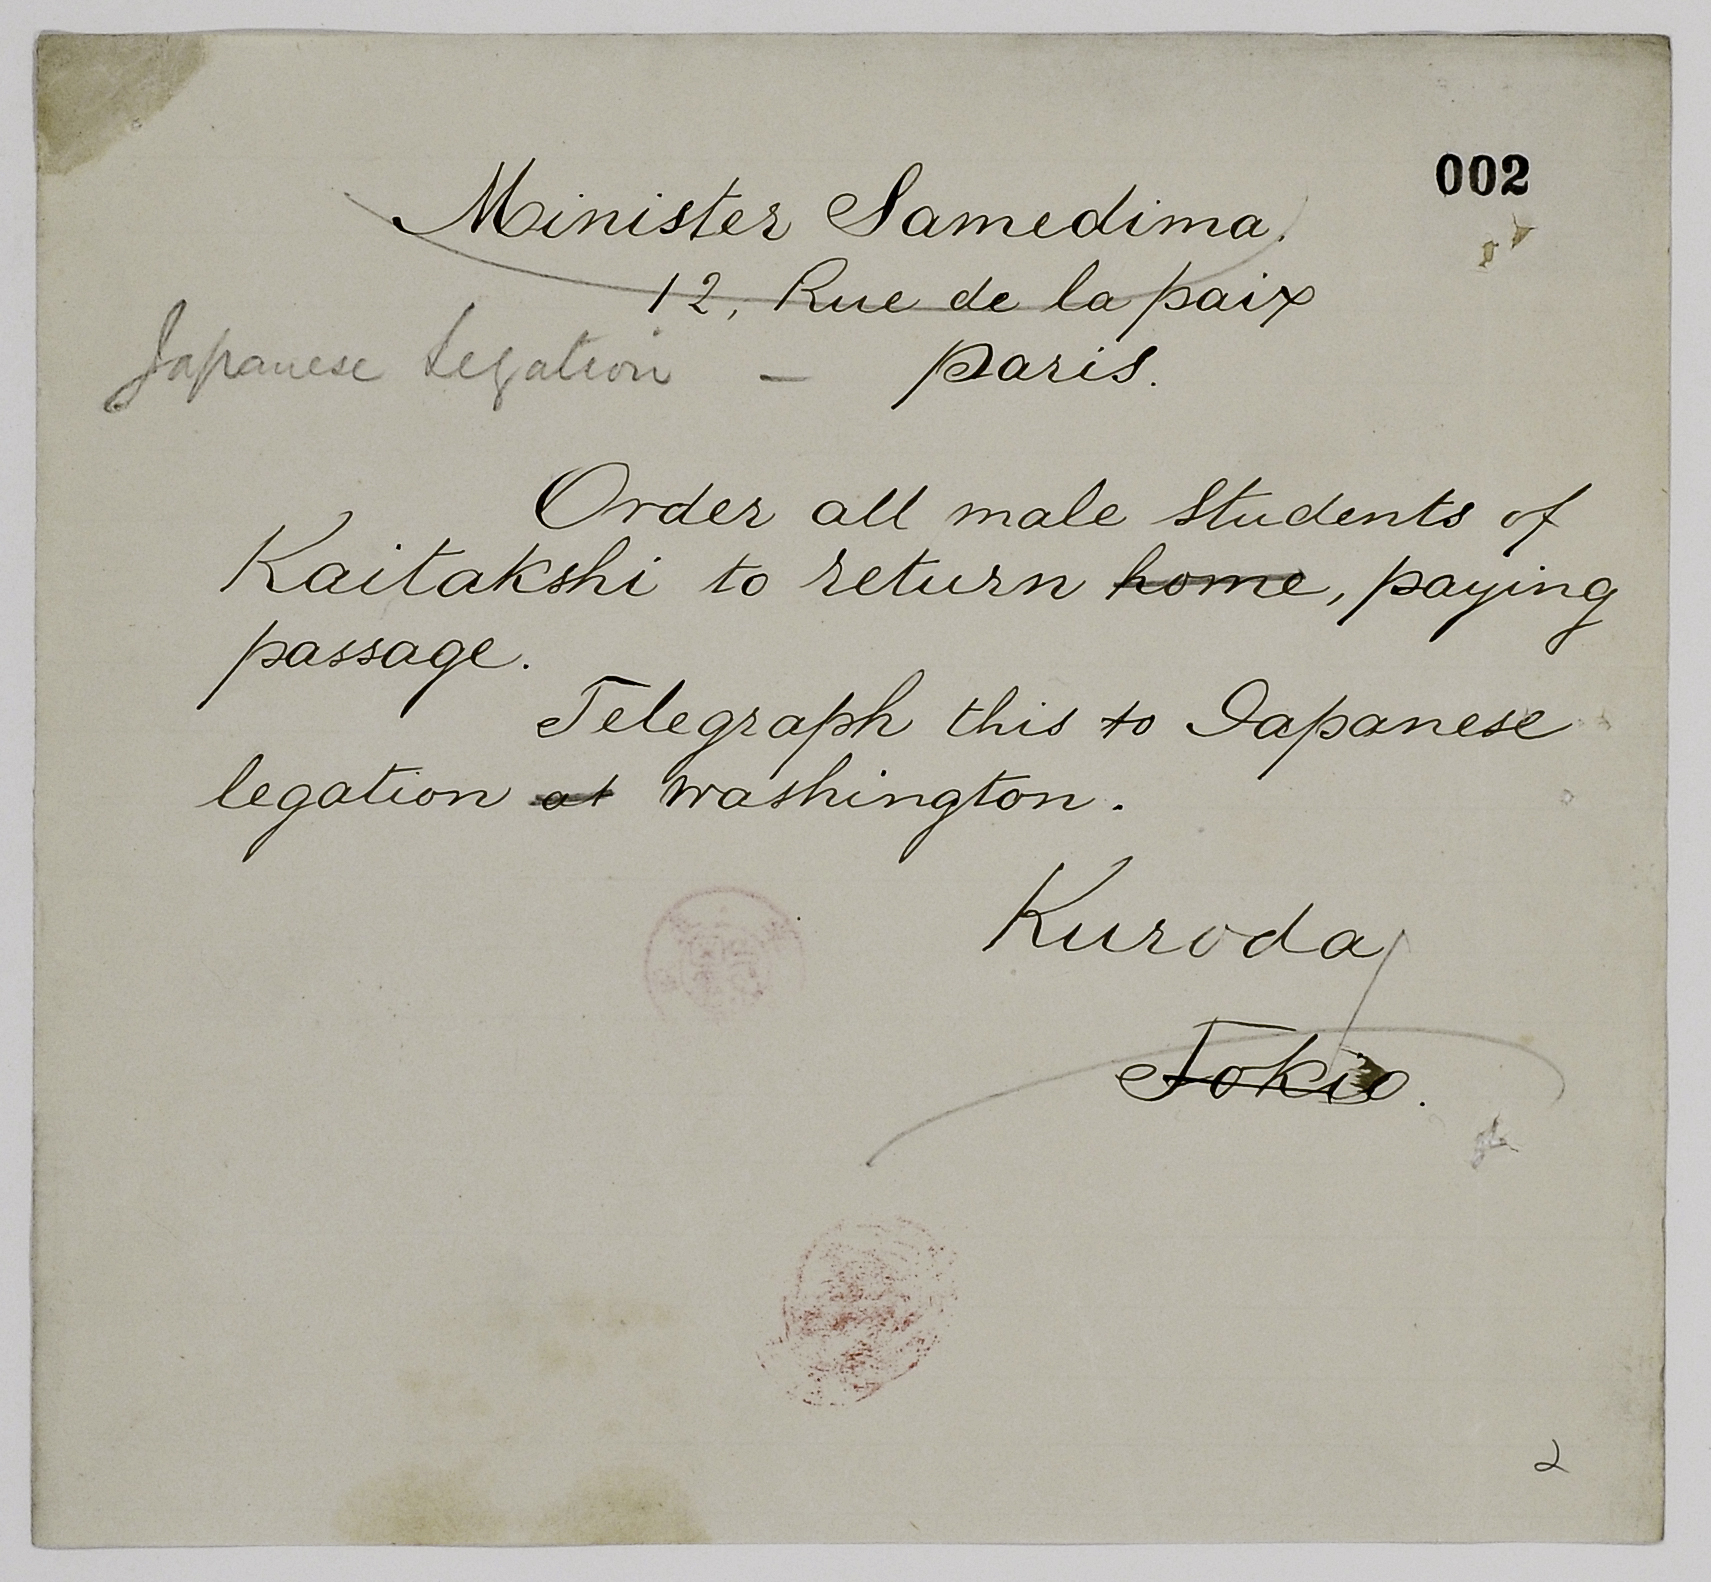 002
Minister Samedima.
12, Rue de la paix
Japanese Legation — Paris.
Order all male students of
Kaitakshi to return home, paying
passage.
Telegraph this to Japanese
legation at Washington.
Kuroda
Tokio.
2